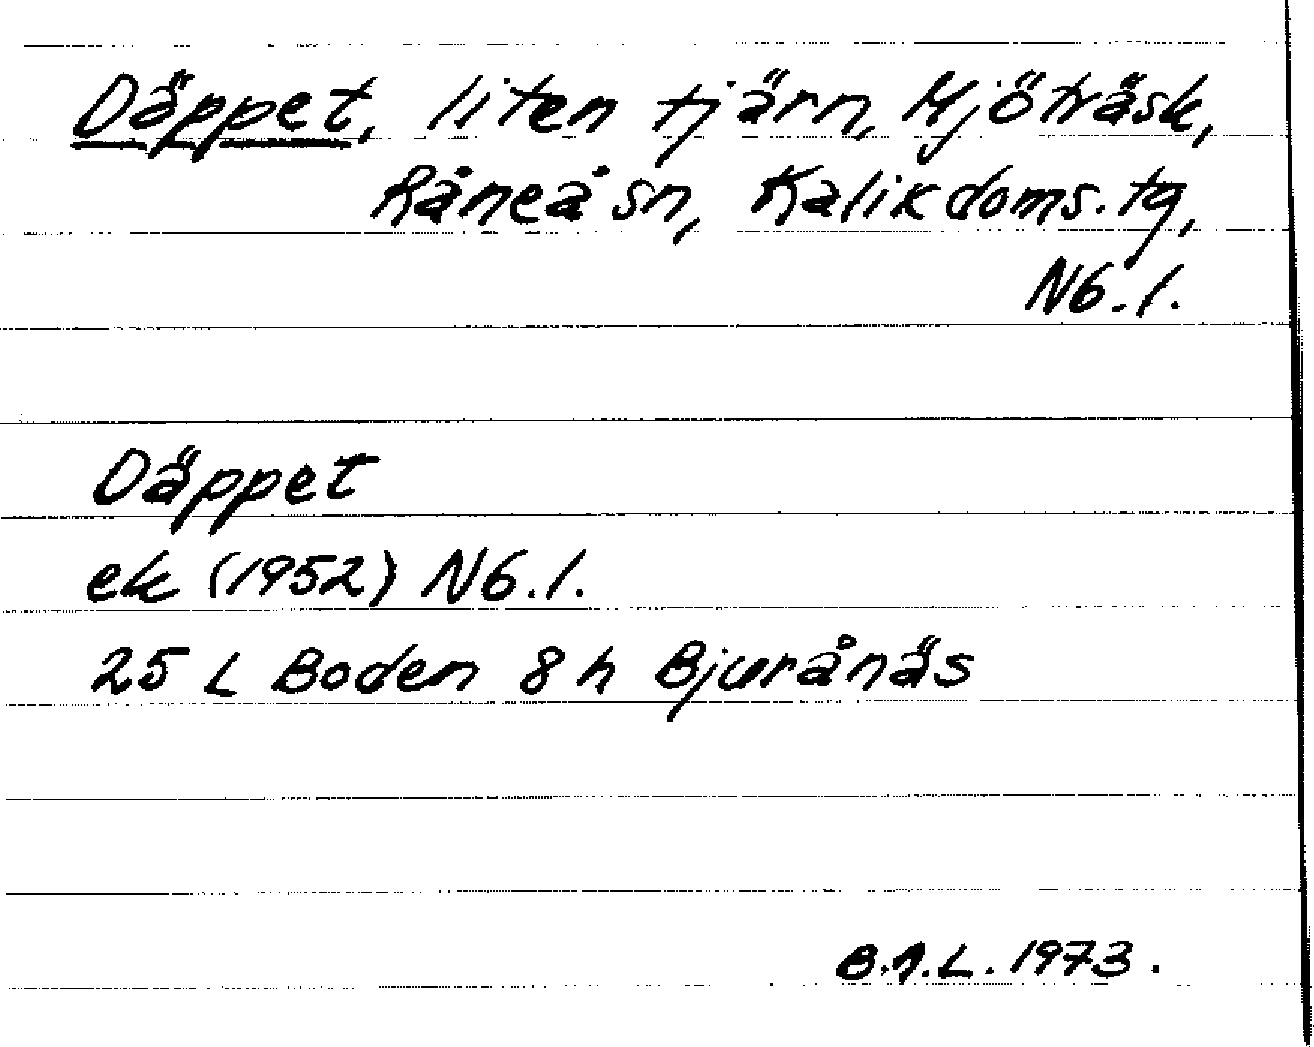 Däppet, liten tjärn, Mjöträsk,
Råneå sn, Kalix doms. tg,
Nb. l.
Däppet
ek (1952) Nb. l.
25 L Boden 8 h Bjurånäs
B.A.L. 1973.